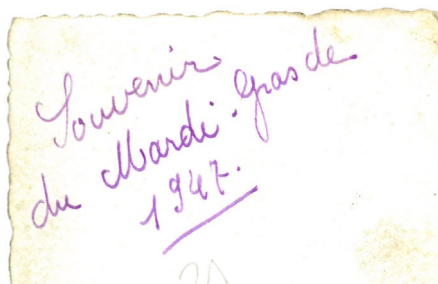 Souvenir
du Mardi-Gras de
1947.
21